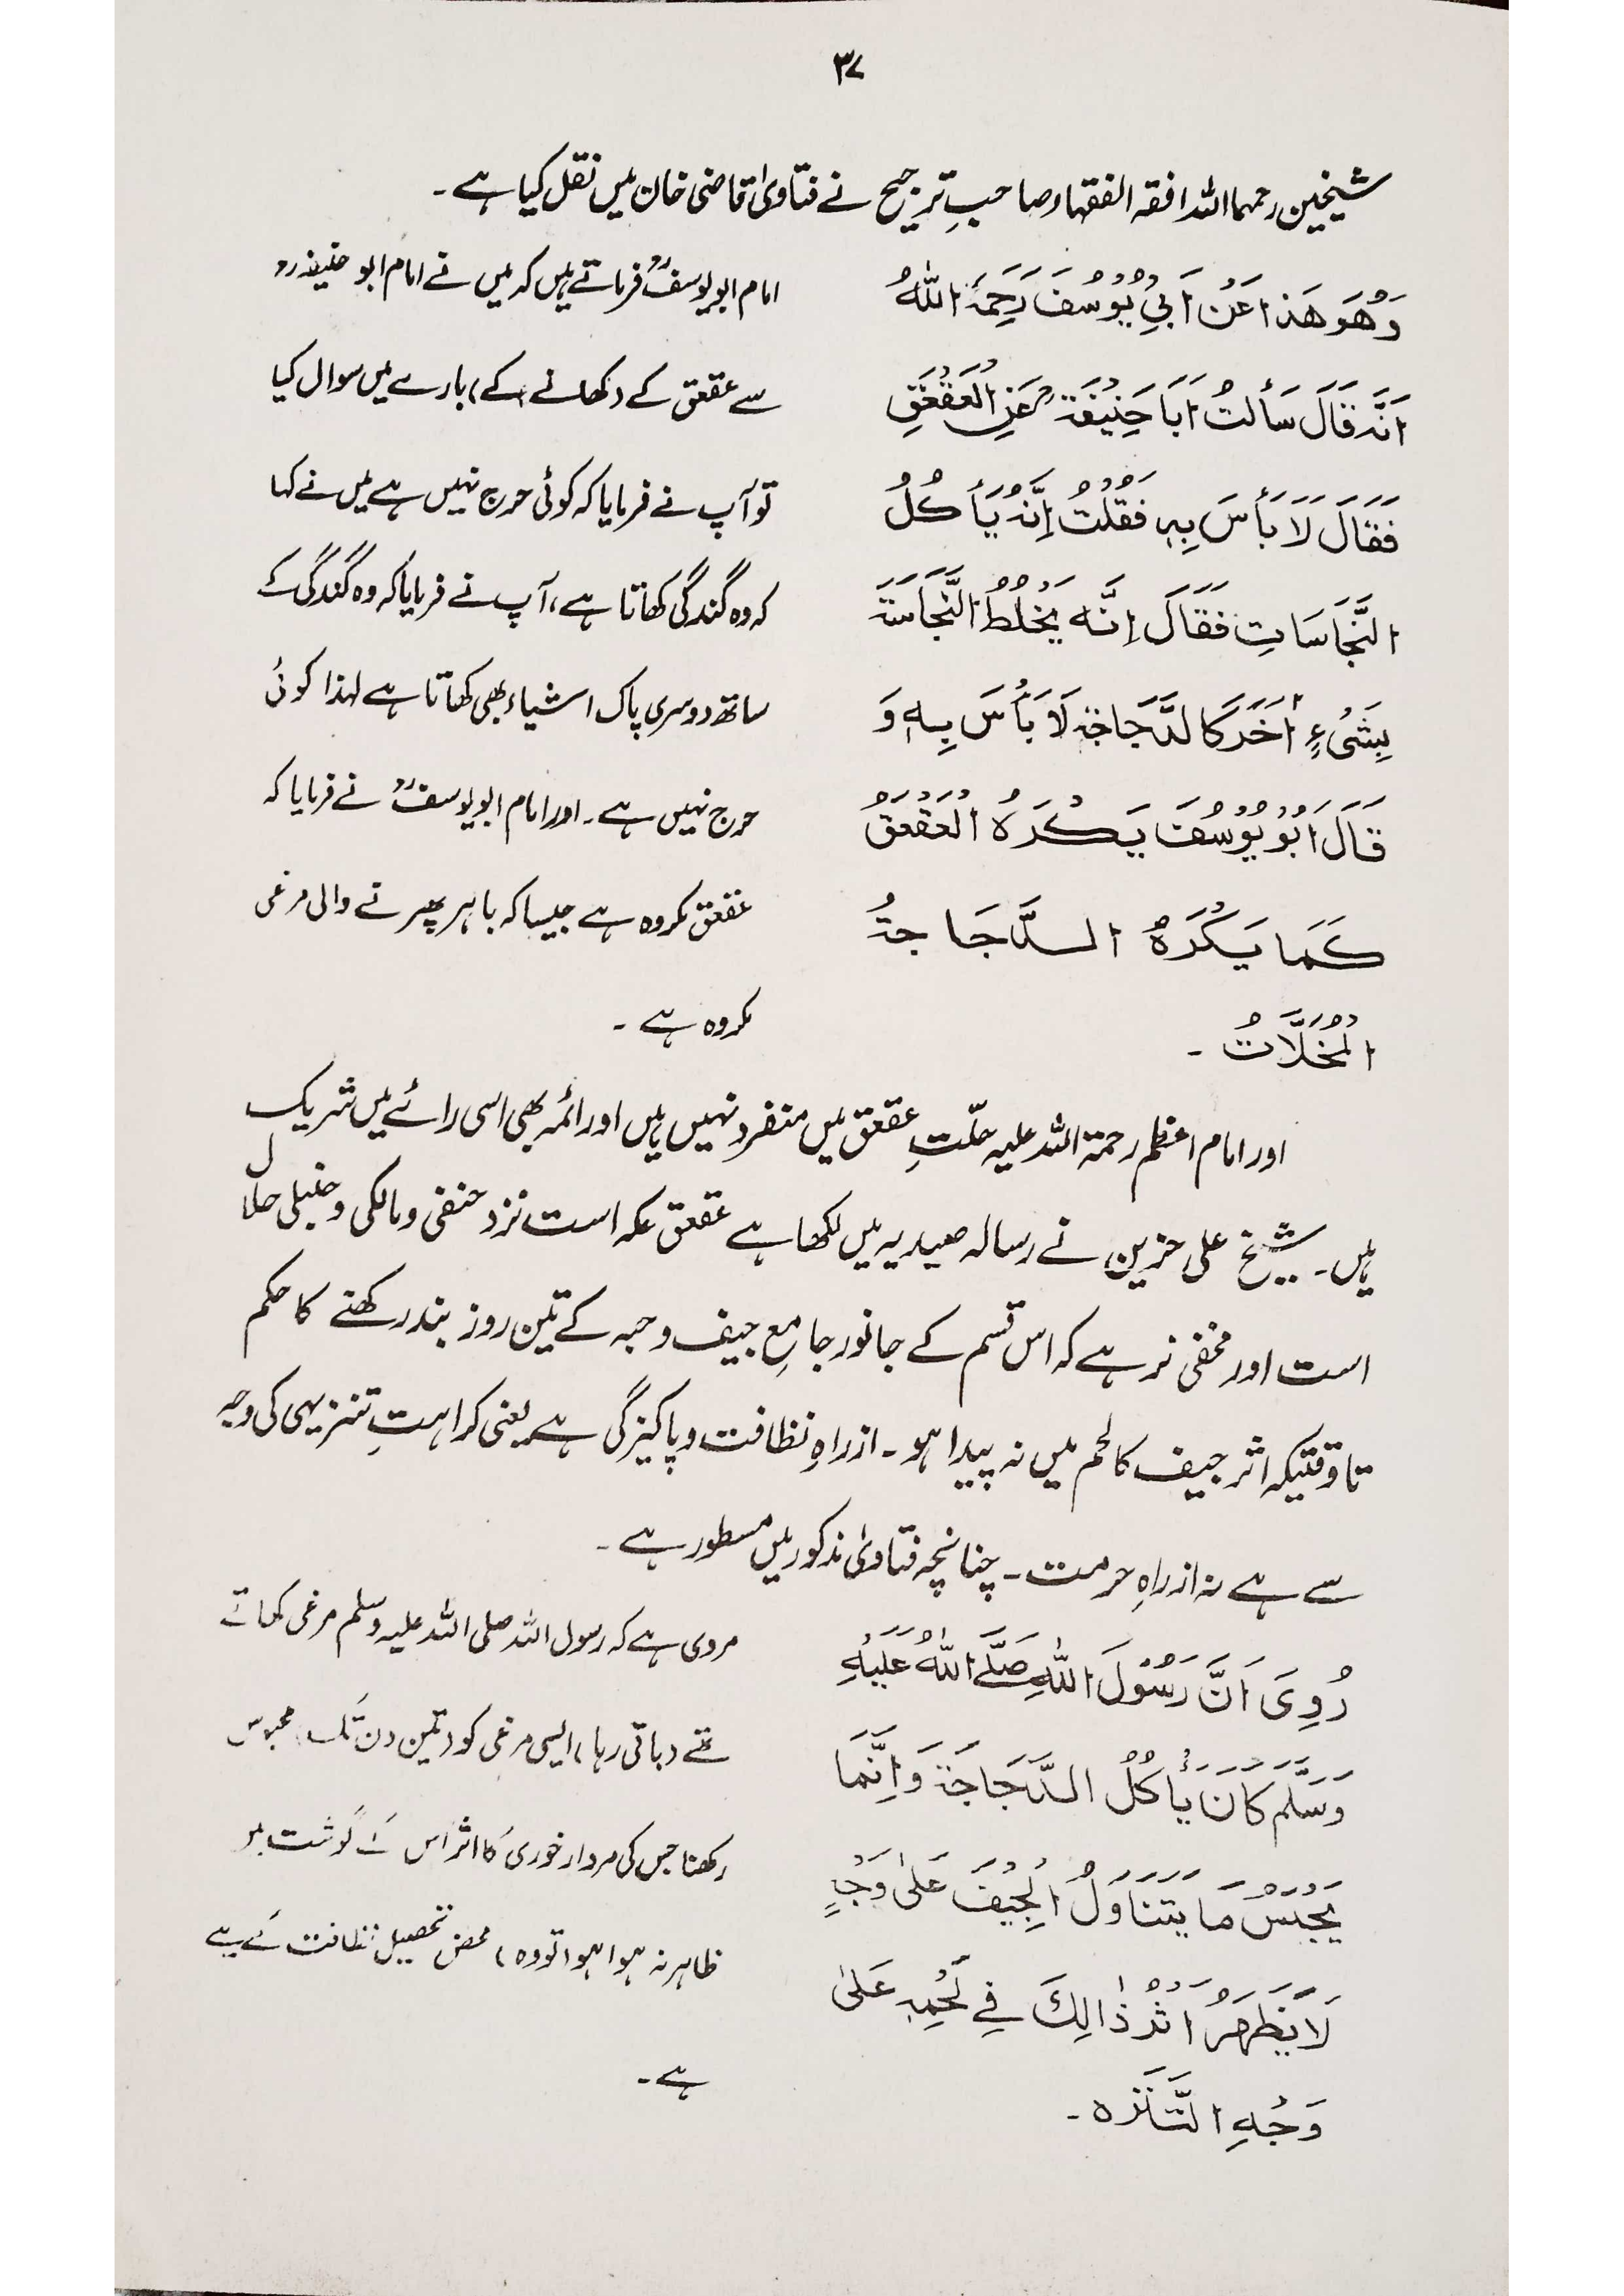 ۳۷
شیخین رحمہما اللہ افقہ الفقہاء و صاحبِ ترجیح نے فتاویٰ قاضی خان میں نقل کیا ہے۔
وَهُوَ هَذَا عَنْ اَبِيْ يُوْسُفَ رَحِمَهُ اللّٰهُ
اَنَّهٗ قَالَ سَأَلْتُ اَبَا حَنِيْفَةَؒ عَنِ الْعَقْعَقِ
فَقَالَ لَا بَأْسَ بِهٖ فَقُلْتُ اِنَّهٗ يَأْكُلُ
النَّجَاسَاتِ فَقَالَ اِنَّهٗ يَخْلُطُ النَّجَاسَةَ
بِشَيْءٍ اٰخَرَ كَالدَّجَاجَةِ لَا بَأْسَ بِهٖ وَ
قَالَ اَبُوْ يُوْسُفَ يَكْرَهُ الْعَقْعَقُ
كَمَا يَكْرَهُ الدَّجَاجَةُ
الْمُخَلَّاتُ ۔
امام ابویوسفؒ فرماتے ہیں کہ میں نے امام ابو حنیفہ رو
سے عقعق کے (کھانے کے) بارے میں سوال کیا
تو آپ نے فرمایا کہ کوئی حرج نہیں ہے میں نے کہا
کہ وہ گندگی کھاتا ہے، آپ نے فرمایا کہ وہ گندگی کے
ساتھ دوسری پاک اشیاء بھی کھاتا ہے لہذا کوئی
حرج نہیں ہے۔ اور امام ابویوسفؒ نے فرمایا کہ
عقعق مکروہ ہے جیسا کہ باہر پھرنے والی مرغی
مکروہ ہے ۔
اور امام اعظم رحمۃ اللہ علیہ حلّتِ عقعق میں منفرد نہیں ہیں اور ائمہ بھی اسی رائے میں شریک
ہیں۔ شیخ علی حزین نے رسالہ صیدیہ میں لکھا ہے عقعق عکہ است نزد حنفی و مالکی و حنبلی حلال
است اور مخفی نر ہے کہ اس قسم کے جانور جامعِ جیف و حبہ کے تین روز بند رکھنے کا حکم
تا وقتیکہ اثر جیف کا لحم میں نہ پیدا ہو۔ از راہِ نظافت و پاکیزگی ہے یعنی کراہتِ تنزیہی کی وجہ
سے ہے نہ از راہِ حرمت۔ چنانچہ فتاویٰ مذکور میں مسطور ہے ۔
رُوِيَ اَنَّ رَسُوْلَ اللّٰهِ صَلَّے اللّٰهُ عَلَيْهِ
وَسَلَّمَ كَانَ يَأْكُلُ الدَّجَاجَةَ وَاِنَّمَا
يُحْبَسُ مَا يَتَنَاوَلُ الْجِيَفَ عَلٰى وَجْهٍ
لَا يَظْهَرُ اَثَرُ ذٰالِكَ فِيْ لَحْمِهٖ عَلٰى
وَجْهِ التَّنَزُّه ۔
مروی ہے کہ رسول اللہ صلی اللہ علیہ وسلم مرغی کھاتے
تھے (باقی رہا) ایسی مرغی کو (تین دن تک) محبوس
رکھنا جس کی مردار خوری کا اثر اس کے گوشت پر
ظاہر نہ ہوا ہو (تو وہ) محض تحصیل نظافت کے لیے
ہے ۔